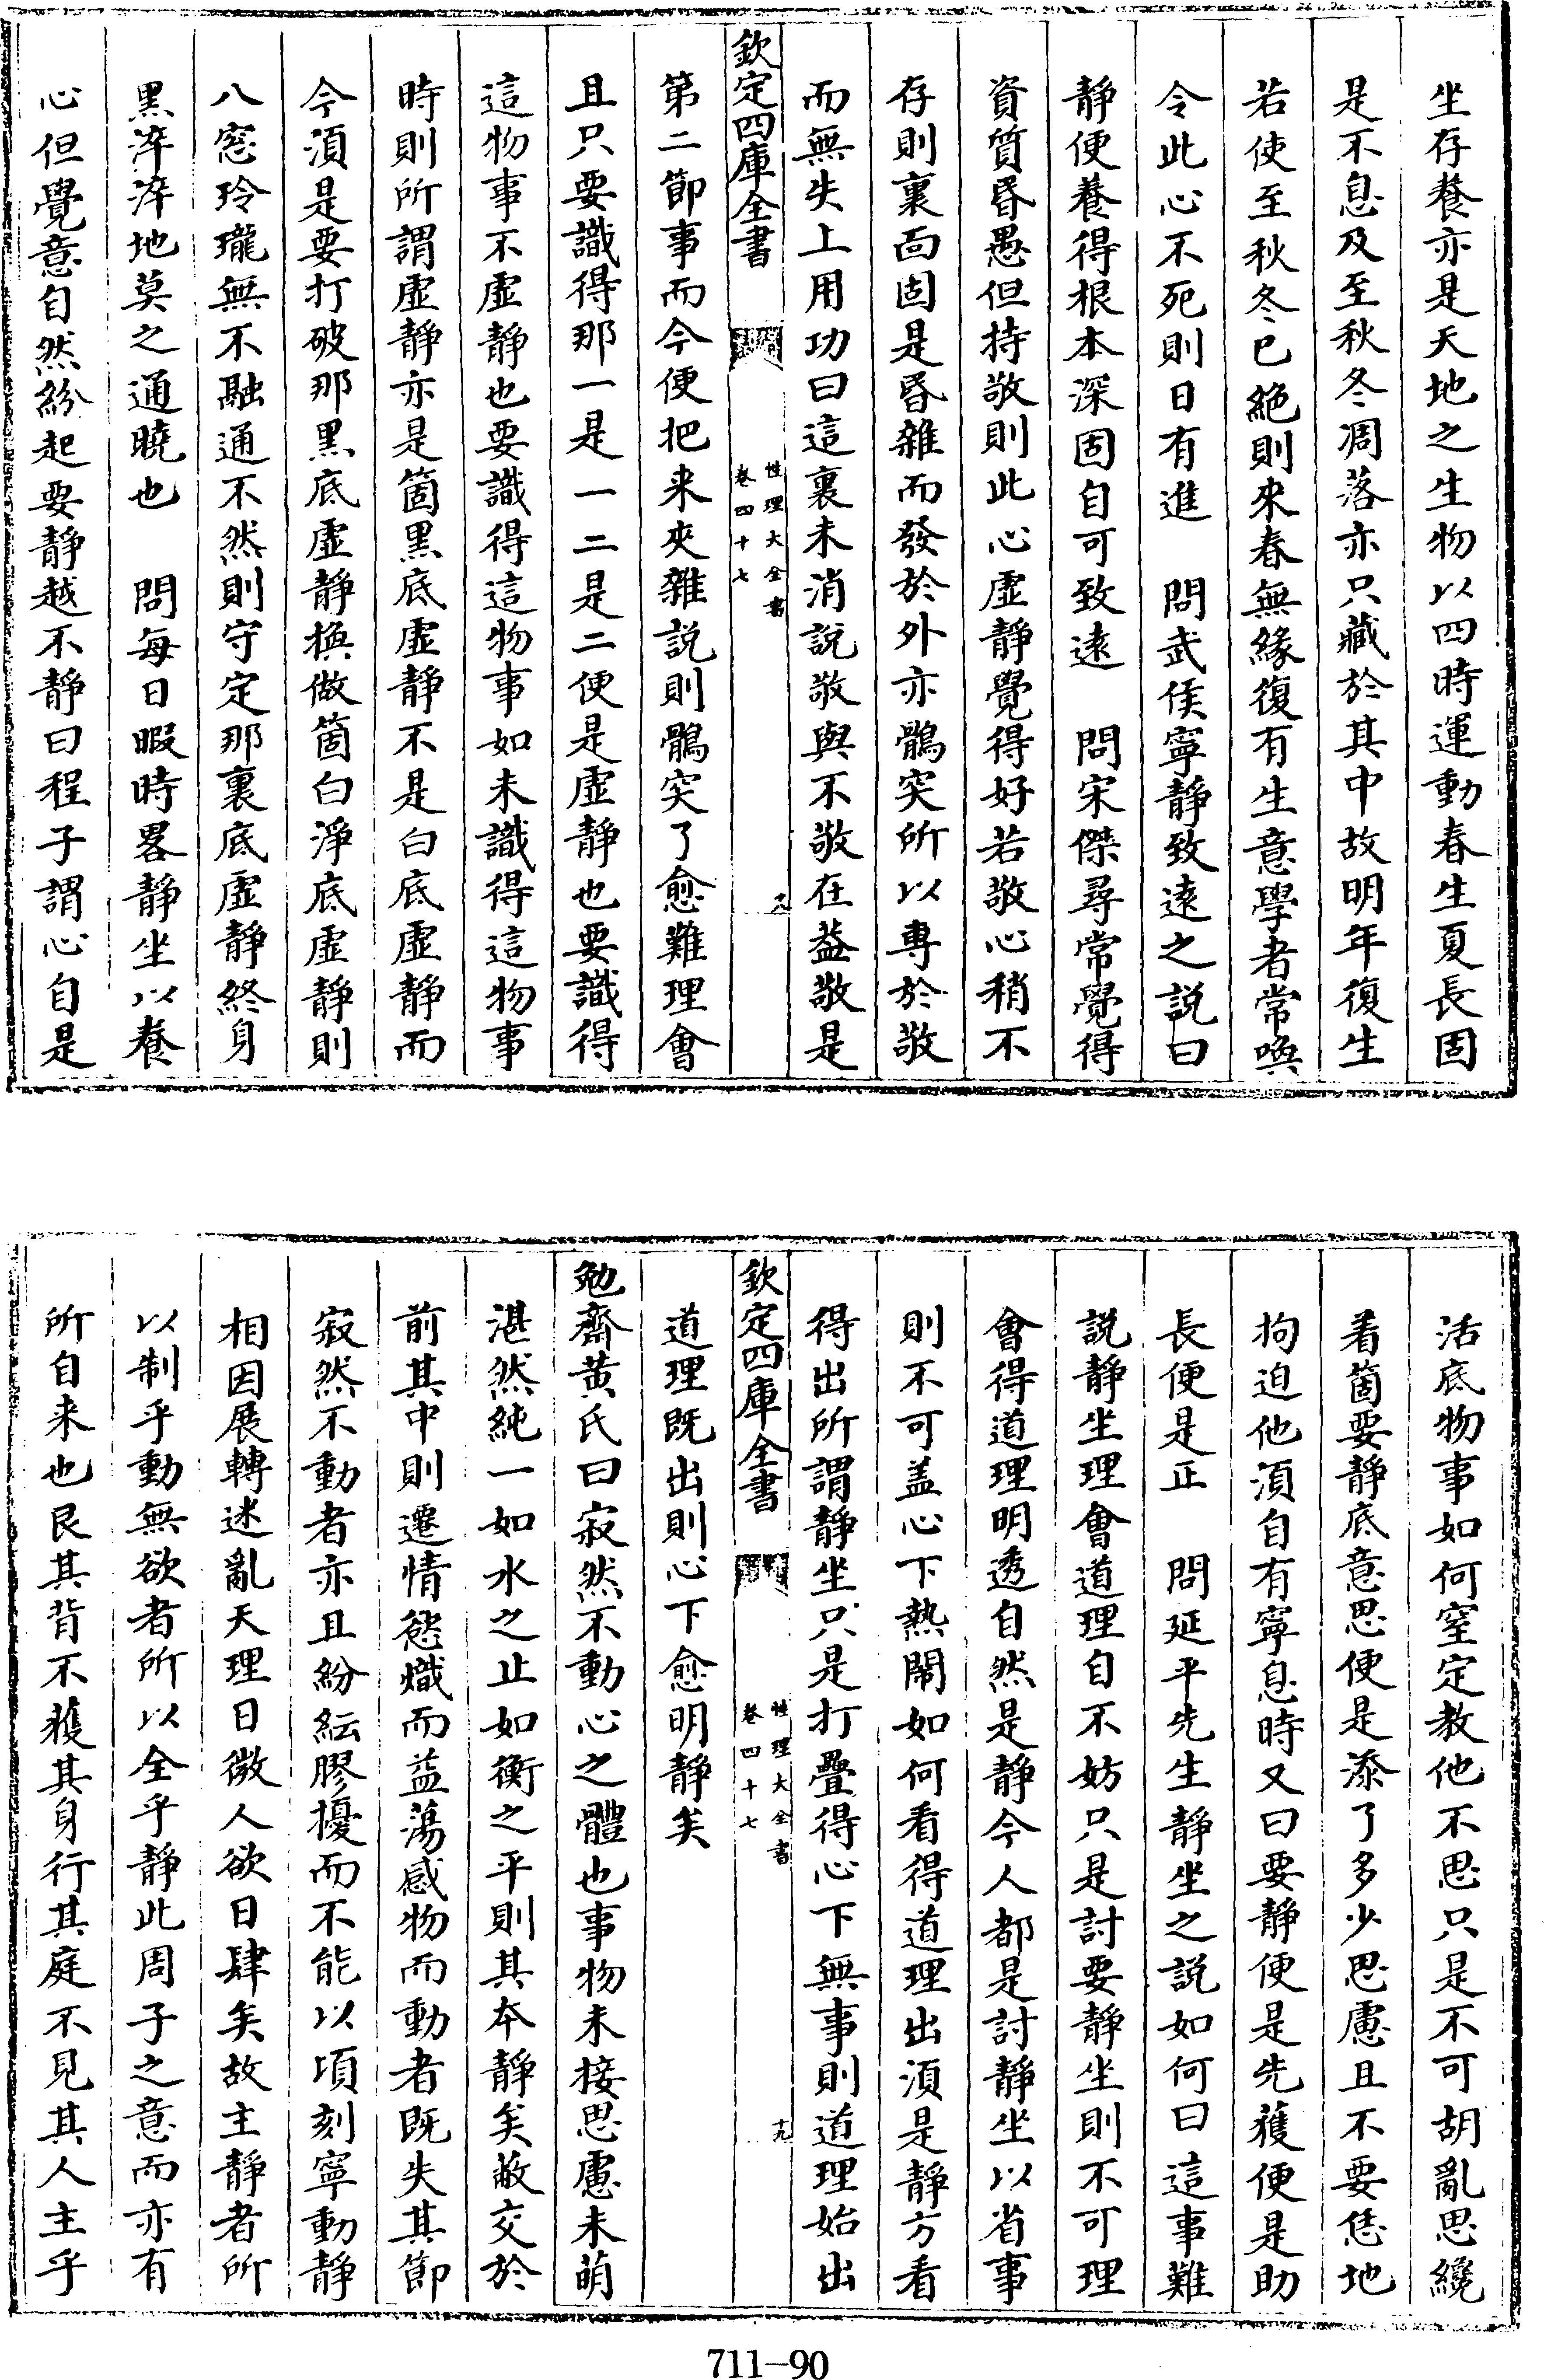 坐存養亦是天地之生物以四時運動春生夏長固
是不息及至秋冬凋落亦只藏於其中故明年復生
若使至秋冬已絶則來春無緣復有生意學者常喚
令此心不死則日有進　問武侯寧靜致遠之説曰
靜便養得根本深固自可致遠　問宋傑尋常覺得
資質昏愚但持敬則此心虚靜覺得好若敬心稍不
存則裏面固是昏雜而發於外亦鶻突所以専於敬
而無失上用功曰這裏未消説敬與不敬在葢敬是
欽定四庫全書
性理大全書
卷四十七
第二節事而今便把来夾雜説則鶻突了愈難理會
且只要識得那一是一二是二便是虚靜也要識得
這物事不虚靜也要識得這物事如未識得這物事
時則所謂虚靜亦是箇黒底虚靜不是白底虚靜而
今須是要打破那黒底虚靜換做箇白淨底虚靜則
八窓玲瓏無不融通不然則守定那裏底虚靜終身
黒淬淬地莫之通曉也　問每日暇時畧靜坐以養
心但覺意自然紛起要靜越不靜曰程子謂心自是
活底物事如何窒定教他不思只是不可胡亂思纔
着箇要靜底意思便是添了多少思慮且不要恁地
拘迫他須自有寧息時又曰要靜便是先獲便是助
長便是正　問延平先生靜坐之説如何曰這事難
説靜坐理會道理自不妨只是討要靜坐則不可理
會得道理明透自然是靜今人都是討靜坐以省事
則不可盖心下熱鬧如何看得道理出須是靜方看
得出所謂靜坐只是打疊得心下無事則道理始出
欽定四庫全書
性理大全書
卷四十七
十九
道理既出則心下愈明靜矣
勉齋黄氏曰寂然不動心之體也事物未接思慮未萌
湛然純一如水之止如衡之平則其本靜矣敝交於
前其中則遷情慾熾而益蕩感物而動者既失其節
寂然不動者亦且紛紜膠擾而不能以頃刻寧動靜
相因展轉迷亂天理日微人欲日肆矣故主靜者所
以制乎動無欲者所以全乎靜此周子之意而亦有
所自来也艮其背不獲其身行其庭不見其人主乎
711-90